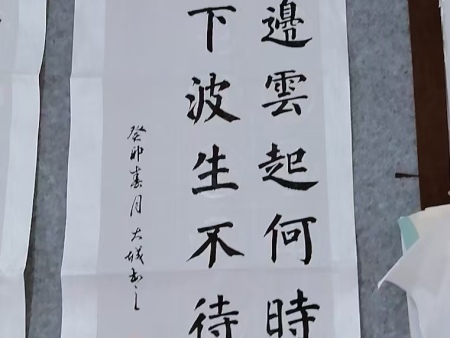 邊雲起何時
下波生不待
癸卯春月大城书之